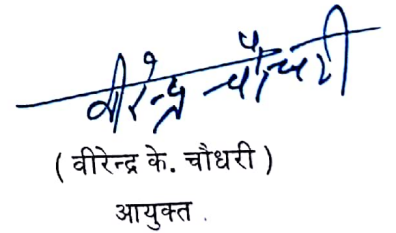 वीरेन्द्र चौधरी
( वीरेन्द्र के. चौधरी )
आयुक्त .